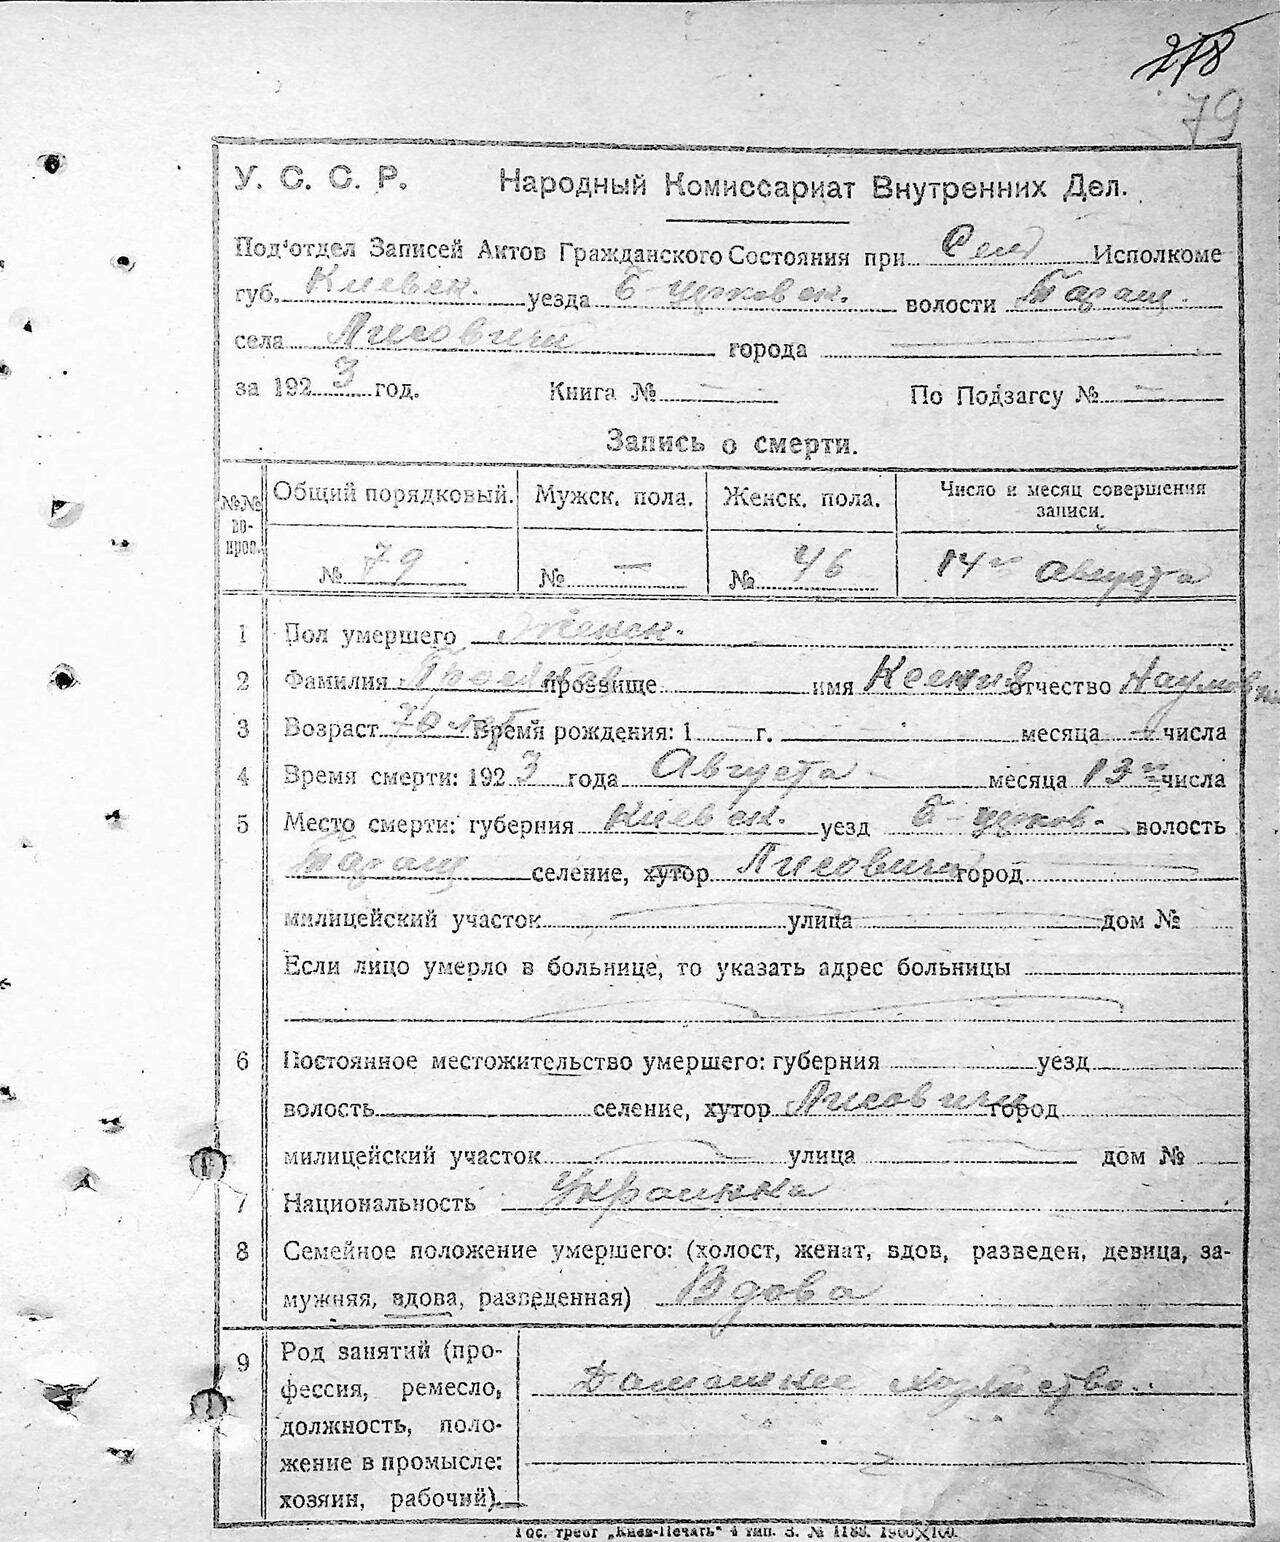 278
79
У. С. С. Р. Народный Комиссариат Внутренних Дел.
Под'отдел Записей Актов Гражданского Состояния при Сель Исполкоме
губ. Киевск. уезда Б-церковск. волости Таращ.
села Лисовичи города
за 1923 год. Книга № — По Подзагсу № —
Запись о смерти.
№№ вопров. Общий порядковый. Мужск. пола. Женск. пола. Число и месяц совершения записи.
№ 79 № — № 46 14го Августа
1 Пол умершего Женск.
2 Фамилия прозвище имя Ксения отчество Наумовна
3 Возраст 70 лет Время рождения: 1 г. месяца числа
4 Время смерти: 1923 года Августа месяца 13го числа
5 Место смерти: губерния Киевск. уезд Б-церков. волость
Таращ селение, хутор Лисовичи город
милицейский участок улица дом №
Если лицо умерло в больнице, то указать адрес больницы
6 Постоянное местожительство умершего: губерния уезд
волость селение, хутор Лисовичи город
милицейский участок улица дом №
7 Национальность Украинка
8 Семейное положение умершего: (холост, женат, вдов, разведен, девица, за-
мужняя, вдова, разведенная) Вдова
9 Род занятий (про-
фессия, ремесло, Домашнее хозяйство.
должность, поло-
жение в промысле:
хозяин, рабочий).
Гос. трест „Киев-Печать" 4 тип. З. № 1188. 1900×100.